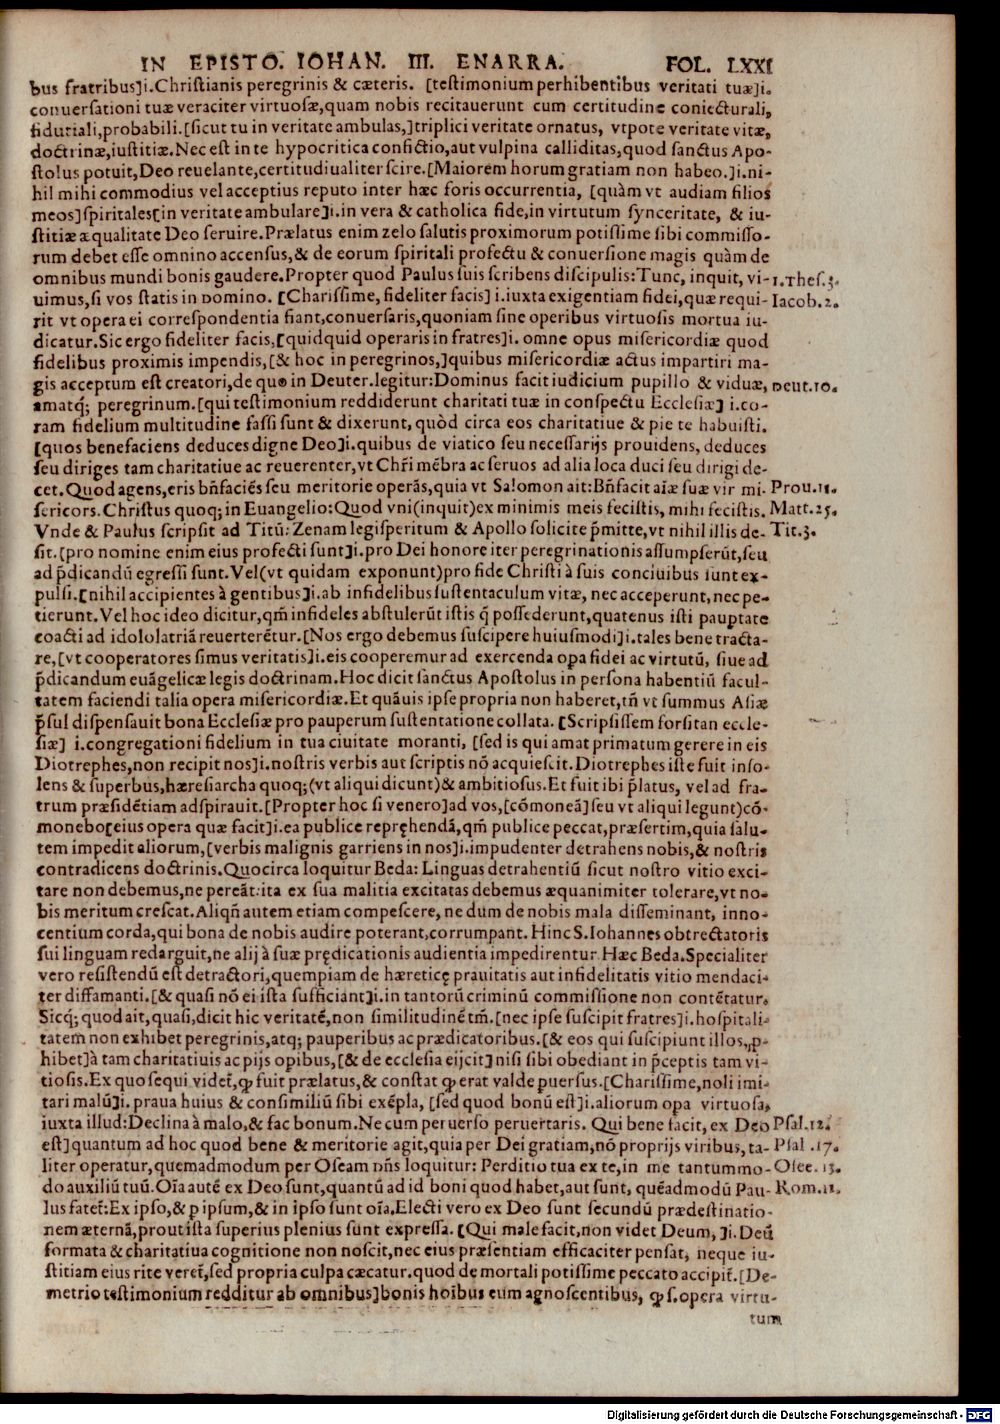 IN EPISTO. IOHAN. III. ENARRA. FOL. LXXI
bus fratribus]i. Chriſtianis peregrinis & cæteris. [teſtimonium perhibentibus veritati tuæ]i.
conuerſationi tuæ veraciter virtuoſæ, quam nobis recitauerunt cum certitudine coniecturali,
fiduciali, probabili. [ſicut tu in veritate ambulas,] triplici veritate ornatus, vtpote veritate vitæ,
doctrinæ, iuſtitiæ. Nec eſt in te hypocritica confictio, aut vulpina calliditas, quod ſanctus Apo-
ſtolus potuit, Deo reuelante, certitudiualiter ſcire. [Maiorem horum gratiam non habeo.]i. ni-
hil mihi commodius vel acceptius reputo inter hæc foris occurrentia, [quàm vt audiam filios
meos] ſpiritales [in veritate ambulare]i. in vera & catholica fide, in virtutum ſynceritate, & iu-
ſtitiæ æqualitate Deo ſeruire. Prælatus enim zelo ſalutis proximorum potiſſime ſibi commiſſo-
rum debet eſſe omnino accenſus, & de eorum ſpiritali profectu & conuerſione magis quàm de
omnibus mundi bonis gaudere. Propter quod Paulus ſuis ſcribens diſcipulis: Tunc, inquit, vi- 1. Theſ. 3.
uimus, ſi vos ſtatis in Domino. [Chariſſime, fideliter facis] i. iuxta exigentiam fidei, quæ requi- Iacob. 2.
rit vt opera ei correſpondentia fiant, conuerſaris, quoniam ſine operibus virtuoſis mortua iu-
dicatur. Sic ergo fideliter facis, [quidquid operaris in fratres]i. omne opus miſericordiæ quod
fidelibus proximis impendis, [& hoc in peregrinos,] quibus miſericordiæ actus impartiri ma-
gis acceptum eſt creatori, de quo in Deuter. legitur: Dominus facit iudicium pupillo & viduæ, Deut. 10.
amatq; peregrinum. [qui teſtimonium reddiderunt charitati tuæ in conſpectu Eccleſiæ] i. co-
ram fidelium multitudine faſſi ſunt & dixerunt, quòd circa eos charitatiue & pie te habuiſti.
[quos benefaciens deduces digne Deo]i. quibus de viatico ſeu neceſſarijs prouidens, deduces
ſeu diriges tam charitatiue ac reuerenter, vt Chr̃i mẽbra ac ſeruos ad alia loca duci ſeu dirigi de-
cet. Quod agens, eris bñfaciẽs ſeu meritorie operãs, quia vt Salomon ait: Bñfacit aĩæ ſuæ vir mi- Prou. 11.
ſericors. Chriſtus quoq; in Euangelio: Quod vni (inquit) ex minimis meis feciſtis, mihi feciſtis. Matt. 25.
Vnde & Paulus ſcripſit ad Titũ: Zenam legiſperitum & Apollo ſolicite p̃mitte, vt nihil illis de- Tit. 3.
ſit. [pro nomine enim eius profecti ſunt]i. pro Dei honore iter peregrinationis aſſumpſerũt, ſeu
ad p̃dicandũ egreſſi ſunt. Vel (vt quidam exponunt) pro fide Chriſti à ſuis conciuibus ſunt ex-
pulſi. [nihil accipientes à gentibus]i. ab infidelibus ſuſtentaculum vitæ, nec acceperunt, nec pe-
tierunt. Vel hoc ideo dicitur, qm̃ infideles abſtulerũt iſtis q̃ poſſederunt, quatenus iſti pauptate
coacti ad idololatriã reuerterẽtur. [Nos ergo debemus ſuſcipere huiuſmodi]i. tales bene tracta-
re, [vt cooperatores ſimus veritatis]i. eis cooperemur ad exercenda opa fidei ac virtutũ, ſiue ad
p̃dicandum euãgelicæ legis doctrinam. Hoc dicit ſanctus Apoſtolus in perſona habentiũ facul-
tatem faciendi talia opera miſericordiæ. Et quãuis ipſe propria non haberet, tñ vt ſummus Aſiæ
p̃ſul diſpenſauit bona Eccleſiæ pro pauperum ſuſtentatione collata. [Scripſiſſem forſitan eccle-
ſiæ] i. congregationi fidelium in tua ciuitate moranti, [ſed is qui amat primatum gerere in eis
Diotrephes, non recipit nos]i. noſtris verbis aut ſcriptis nõ acquieſcit. Diotrephes iſte fuit inſo-
lens & ſuperbus, hæreſiarcha quoq; (vt aliqui dicunt) & ambitioſus. Et fuit ibi p̃latus, vel ad fra-
trum præſidẽtiam adſpirauit. [Propter hoc ſi venero] ad vos, [cõmoneã] ſeu vt aliqui legunt) cõ-
monebo [eius opera quæ facit]i. ea publice repręhendã, qm̃ publice peccat, præſertim, quia ſalu-
tem impedit aliorum, [verbis malignis garriens in nos]i. impudenter detrahens nobis, & noſtris
contradicens doctrinis. Quocirca loquitur Beda: Linguas detrahentiũ ſicut noſtro vitio exci-
tare non debemus, ne pereãt: ita ex ſua malitia excitatas debemus æquanimiter tolerare, vt no-
bis meritum creſcat. Aliqñ autem etiam compeſcere, ne dum de nobis mala diſſeminant, inno-
centium corda, qui bona de nobis audire poterant, corrumpant. Hinc S. Iohannes obtrectatoris
ſui linguam redarguit, ne alij à ſuæ prędicationis audientia impedirentur Hæc Beda. Specialiter
vero reſiſtendũ eſt detractori, quempiam de hæreticę prauitatis aut infidelitatis vitio mendaci-
ter diffamanti. [& quaſi nõ ei iſta ſufficiant]i. in tantorũ criminũ commiſſione non contẽtatur.
Sicq; quod ait, quaſi, dicit hic veritatẽ, non ſimilitudinẽ tm̃. [nec ipſe ſuſcipit fratres]i. hoſpitali-
tatem non exhibet peregrinis, atq; pauperibus ac prædicatoribus. [& eos qui ſuſcipiunt illos, ꝓ-
hibet] à tam charitatiuis ac pijs opibus, [& de eccleſia eijcit] niſi ſibi obediant in p̃ceptis tam vi-
tioſis. Ex quo ſequi videt̃, ꝙ fuit prælatus, & conſtat ꝙ erat valde ꝑuerſus. [Chariſſime, noli imi-
tari malũ]i. praua huius & conſimiliũ ſibi exẽpla, [ſed quod bonũ eſt]i. aliorum opa virtuoſa,
iuxta illud: Declina à malo, & fac bonum. Ne cum peruerſo peruertaris. Qui bene facit, ex Deo Pſal. 12.
eſt] quantum ad hoc quod bene & meritorie agit, quia per Dei gratiam, nõ proprijs viribus, ta- Pſal. 17.
liter operatur, quemadmodum per Oſeam dñs loquitur: Perditio tua ex te, in me tantummo- Oſee. 13.
do auxiliũ tuũ. Oĩa autẽ ex Deo ſunt, quantũ ad id boni quod habet, aut ſunt, quẽadmodũ Pau- Rom. 11.
lus fatet̃: Ex ipſo, & ꝑ ipſum, & in ipſo ſunt oĩa. Electi vero ex Deo ſunt ſecundũ prædeſtinatio-
nem æternã, prout iſta ſuperius plenius ſunt expreſſa. [Qui male facit, non videt Deum, ]i. Deũ
formata & charitatiua cognitione non noſcit, nec eius præſentiam efficaciter penſat, neque iu-
ſtitiam eius rite veret̃, ſed propria culpa cæcatur. quod de mortali potiſſime peccato accipit̃. [De-
metrio teſtimonium redditur ab omnibus] bonis hoĩbus eum agnoſcentibus, ꝙ ſ. opera virtu-
tum
Digitalisierung gefördert durch die Deutsche Forschungsgemeinschaft - DFG